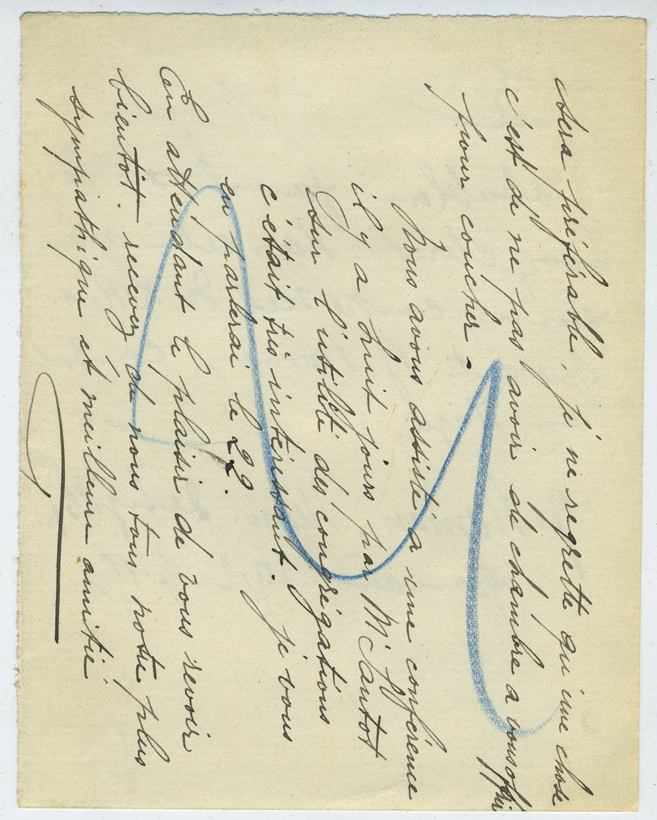 sera préférable. je ne regrette qu'une chose
c'est de ne pas avoir de chambre a vous offrir
pour coucher.
Nous avons assisté a une conférence
il y a huit jours par Mr Jantot
sur l'utilité des congrégations
c'était très interessant. je vous
en parlerai le 22.
En attendant le plaisir de vous revoir
bientot. recevez de nous tous notre plus
sympathique et meilleure amitié